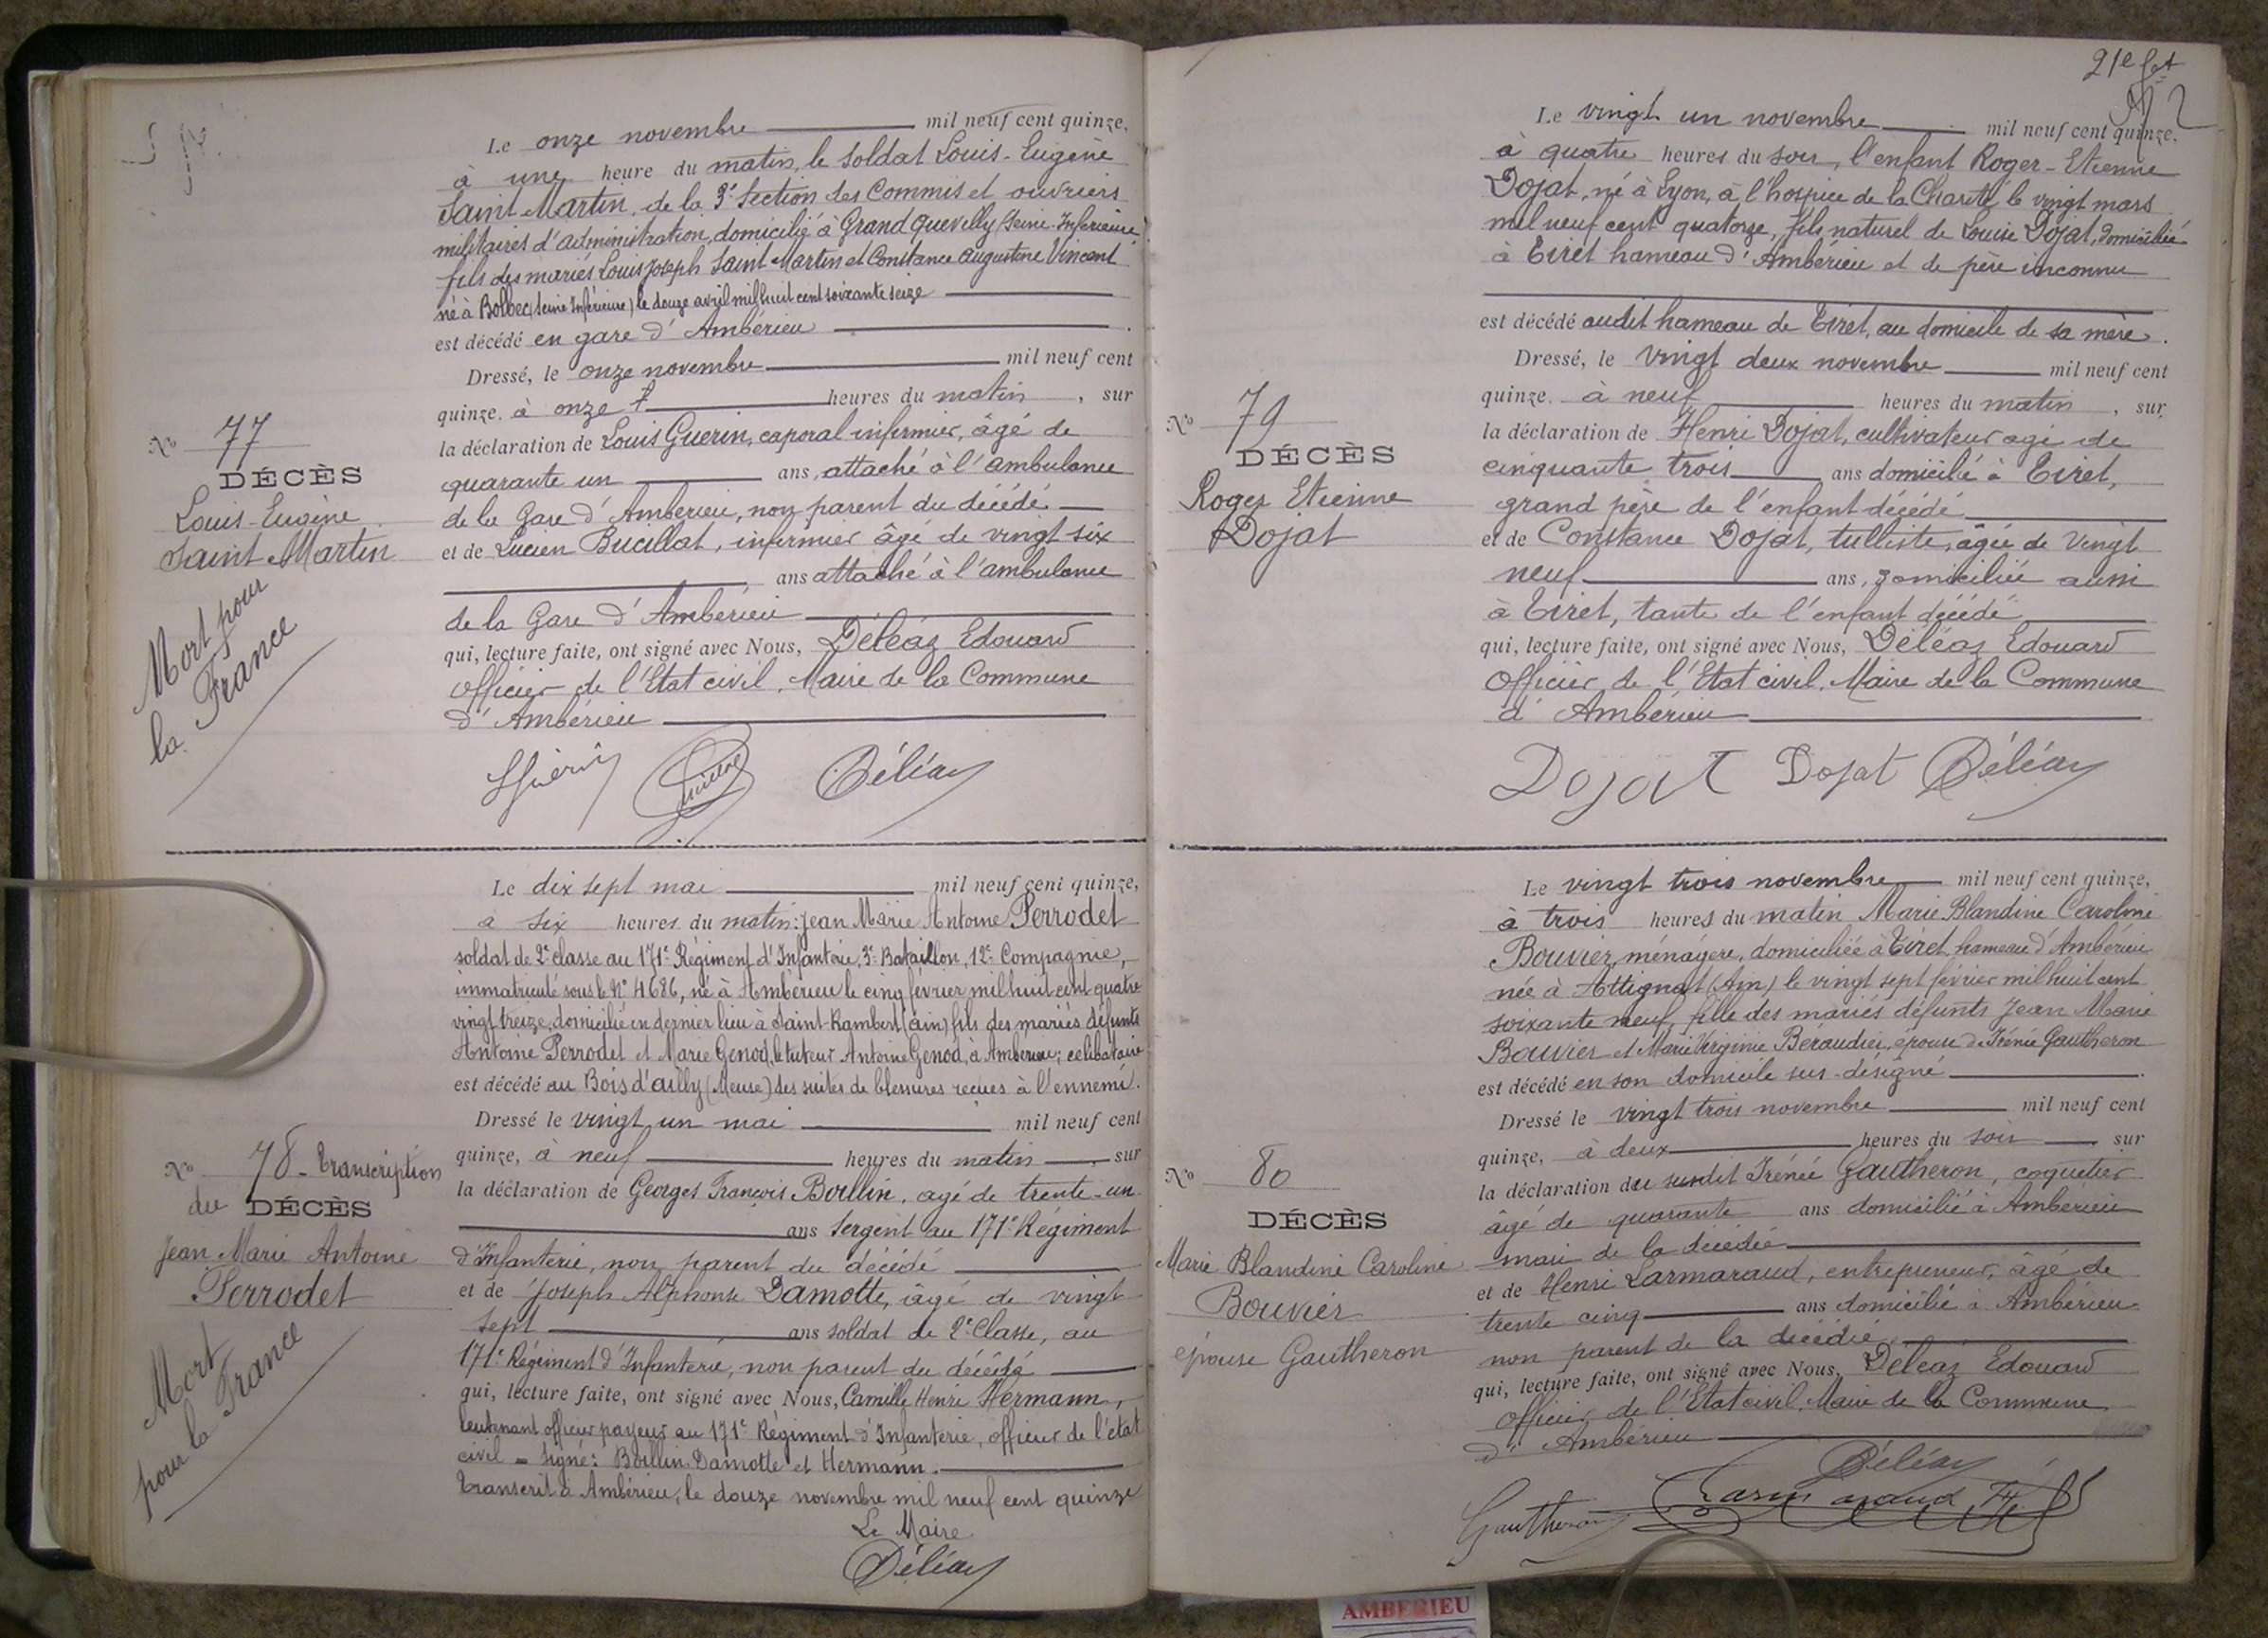 Le onze novembre mil neuf cent quinze,
à une heure du matin, le soldat Louis-Eugène
Saint Martin, de la 3e Section des Commis et ouvriers
militaires d'administration, domicilié à Grand Quevilly (Seine-Inférieure)
fils des mariés Louis Joseph Saint Martin et Constance Augustine Vincent
né à Bolbec (Seine Inférieure) le douze avril mil huit cent soixante seize
est décédé en gare d'Ambérieu
Dressé, le onze novembre mil neuf cent
quinze, à onze heures du matin, sur
la déclaration de Louis Guerin, caporal infirmier, âgé de
quarante un ans, attaché à l'ambulance
de la Gare d'Ambérieu, non parent du décédé
et de Lucien Bucillat, infirmier âgé de vingt six
ans attaché à l'ambulance
de la Gare d'Ambérieu
qui, lecture faite, ont signé avec Nous, Déléaz Edouard
Officier de l'Etat civil, Maire de la Commune
d'Ambérieu
No 77
DÉCÈS
Louis-Eugène
Saint Martin
Mort pour
la France
Déléaz
Le dix sept mai mil neuf cent quinze,
à six heures du matin: Jean Marie Antoine Perrodet
soldat de 2e classe au 171e Régiment d'Infanterie, 3e Bataillon, 12e Compagnie,
immatriculé sous le No 4686, né à Ambérieu le cinq février mil huit cent quatre
vingt treize, domicilié en dernier lieu à Saint-Rambert (Ain) fils des mariés défunts
Antoine Perrodet et Marie Genod, le tuteur Antoine Genod, à Ambérieu; célibataire
est décédé au Bois d'ailly (Meuse) des suites de blessures reçues à l'ennemi.
Dressé le vingt un mai mil neuf cent
quinze, à neuf heures du matin, sur
la déclaration de Georges François Boillin, agé de trente-un
ans Sergent au 171e Régiment
d'Infanterie, non parent du décédé
et de Joseph Alphonse Damotte, âgé de vingt
sept ans soldat de 2e Classe, au
171e Régiment d'Infanterie, non parent du décédé
qui, lecture faite, ont signé avec Nous, Camille Henri Hermann,
lieutenant officier payeur au 171e Régiment d'Infanterie, officier de l'état
civil = Signé: Boillin, Damotte et Hermann.
Transcrit à Ambérieu, le douze novembre mil neuf cent quinze
Le Maire
Déléaz
No 78 - Transcription
du DÉCÈS
Jean Marie Antoine
Perrodet
Mort
pour la France
21e fet
Le vingt un novembre mil neuf cent quinze.
à quatre heures du soir, l'enfant Roger-Etienne
Dojat, né à Lyon, à l'hospice de la Charité le vingt mars
mil neuf cent quatorze, fils naturel de Louise Dojat, domiciliée
à Tiret hameau d'Ambérieu et de père inconnu
est décédé audit hameau de Tiret, au domicile de sa mère.
Dressé, le vingt deux novembre mil neuf cent
quinze, à neuf heures du matin, sur
la déclaration de Henri Dojat, cultivateur agé de
cinquante trois ans domicilié à Tiret,
grand père de l'enfant décédé
et de Constance Dojat, tulliste, âgée de vingt
neuf ans, domiciliée aussi
à Tiret, tante de l'enfant décédé
qui, lecture faite, ont signé avec Nous, Déléaz Edouard
Officier de l'Etat civil, Maire de la Commune
d'Ambérieu
Dojat Dojat Déléaz
No 79
DÉCÈS
Roger Etienne
Dojat
Le vingt trois novembre mil neuf cent quinze,
à trois heures du matin Marie Blandine Caroline
Bouvier, ménagère, domiciliée à Tiret hameau d'Ambérieu
née à Attignat (Ain) le vingt sept février mil huit cent
soixante neuf, fille des mariés défunts Jean Marie
Bouvier et Marie Virginie Béraudier, épouse de Irénée Gautheron
est décédé en son domicile sus-désigné
Dressé le vingt trois novembre mil neuf cent
quinze, à deux heures du soir sur
la déclaration du susdit Irénée Gautheron, coquetier
âgé de quarante ans domicilié à Ambérieu
mari de la décédée
et de Henri Larmaraud, entrepreneur, âgé de
trente cinq ans domicilié à Ambérieu
non parent de la décédée,
qui, lecture faite, ont signé avec Nous, Déléaz Edouard
Officier de l'Etat civil, Maire de la Commune
d'Ambérieu
Déléaz
Gautheron Larmaraud
No 80
DÉCÈS
Marie Blandine Caroline
Bouvier
épouse Gautheron
AMBERIEU